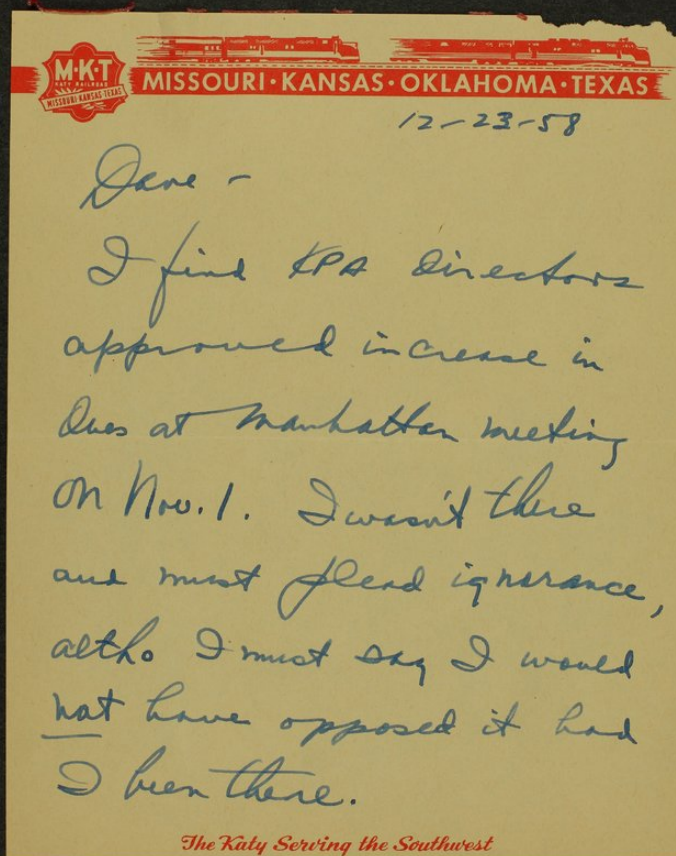 M·K·T
KATY RAILROAD
MISSOURI-KANSAS-TEXAS
MISSOURI·KANSAS·OKLAHOMA·TEXAS
12-23-58
Dave -
I find KPA directors
approved increase in
dues at Manhattan meeting
on Nov. 1. I wasn't there
and must plead ignorance,
altho I must say I would
not have opposed it had
I been there.
The Katy Serving the Southwest